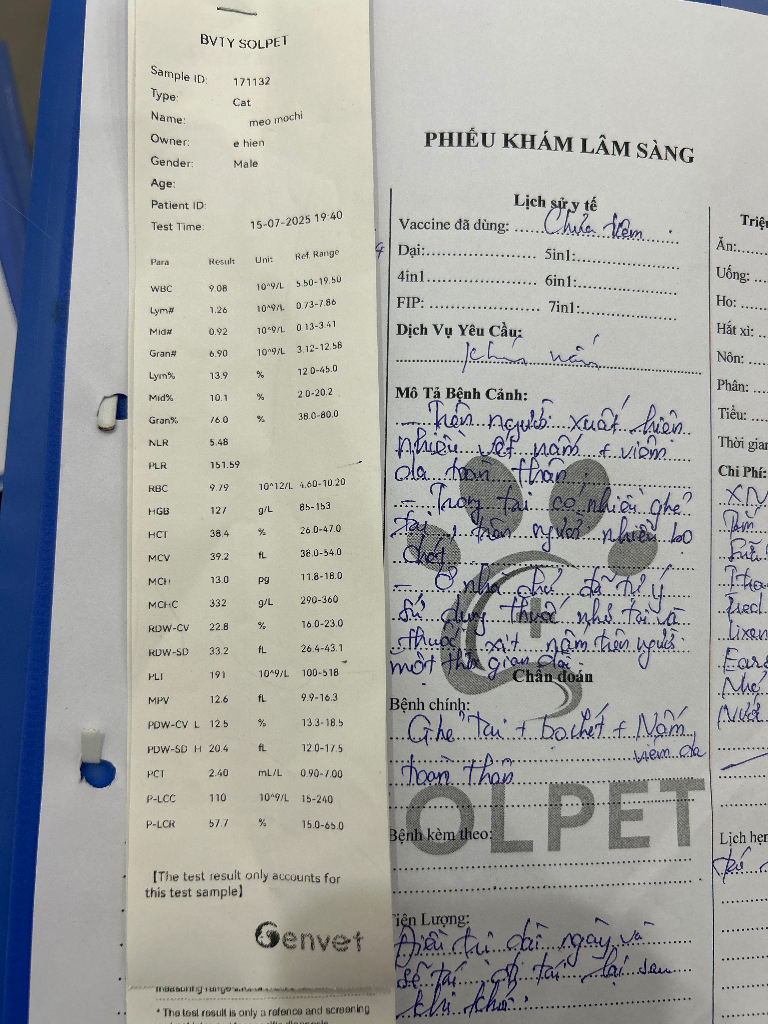 BVTY SOLPET
Sample ID: 171132
Type: Cat
Name: meo mochi
Owner: e hien
Gender: Male
Age:
Patient ID:
Test Time: 15-07-2025 19:40
Para Result Unit Ref. Range
WBC 9.08 10^9/L 5.50-19.50
Lym# 1.26 10^9/L 0.73-7.86
Mid# 0.92 10^9/L 0.13-3.41
Gran# 6.90 10^9/L 3.12-12.58
Lym% 13.9 % 12.0-45.0
Mid% 10.1 % 2.0-20.2
Gran% 76.0 % 38.0-80.0
NLR 5.48
PLR 151.59
RBC 9.79 10^12/L 4.60-10.20
HGB 127 g/L 85-153
HCT 38.4 % 26.0-47.0
MCV 39.2 fL 38.0-54.0
MCH 13.0 pg 11.8-18.0
MCHC 332 g/L 290-360
RDW-CV 22.8 % 16.0-23.0
RDW-SD 33.2 fL 26.4-43.1
PLT 191 10^9/L 100-518
MPV 12.6 fL 9.9-16.3
PDW-CV L 12.5 % 13.3-18.5
PDW-SD H 20.4 fL 12.0-17.5
PCT 2.40 mL/L 0.90-7.00
P-LCC 110 10^9/L 15-240
P-LCR 57.7 % 15.0-65.0
【The test result only accounts for
this test sample】
Genvet
* The test result is only a refence and screening
PHIẾU KHÁM LÂM SÀNG
Lịch sử y tế
Vaccine đã dùng: Chưa tiêm
Dại: 5in1:
4in1 6in1:
FIP: 7in1:
Dịch Vụ Yêu Cầu:
khám nấm
Mô Tả Bệnh Cảnh:
- Trên người xuất hiện
nhiều vết nấm + viêm
da toàn thân.
- Trong tai có nhiều ghẻ
tai, trên người nhiều bọ
chét
- Ở nhà chủ đã tự ý
sử dụng thuốc nhỏ tai và
thuốc xịt nấm trên người
một thời gian dài.
Chẩn đoán
Bệnh chính:
Ghẻ tai + bọ chét + Nấm
viêm da
toàn thân
SOLPET
Bệnh kèm theo:
Tiên Lượng:
Điều trị dài ngày và
sẽ tái đi tái lại sau
khi khỏi.
Ăn:
Uống:
Ho:
Hắt xì:
Nôn:
Phân:
Tiểu:
Thời gian
Chi Phí:
XN